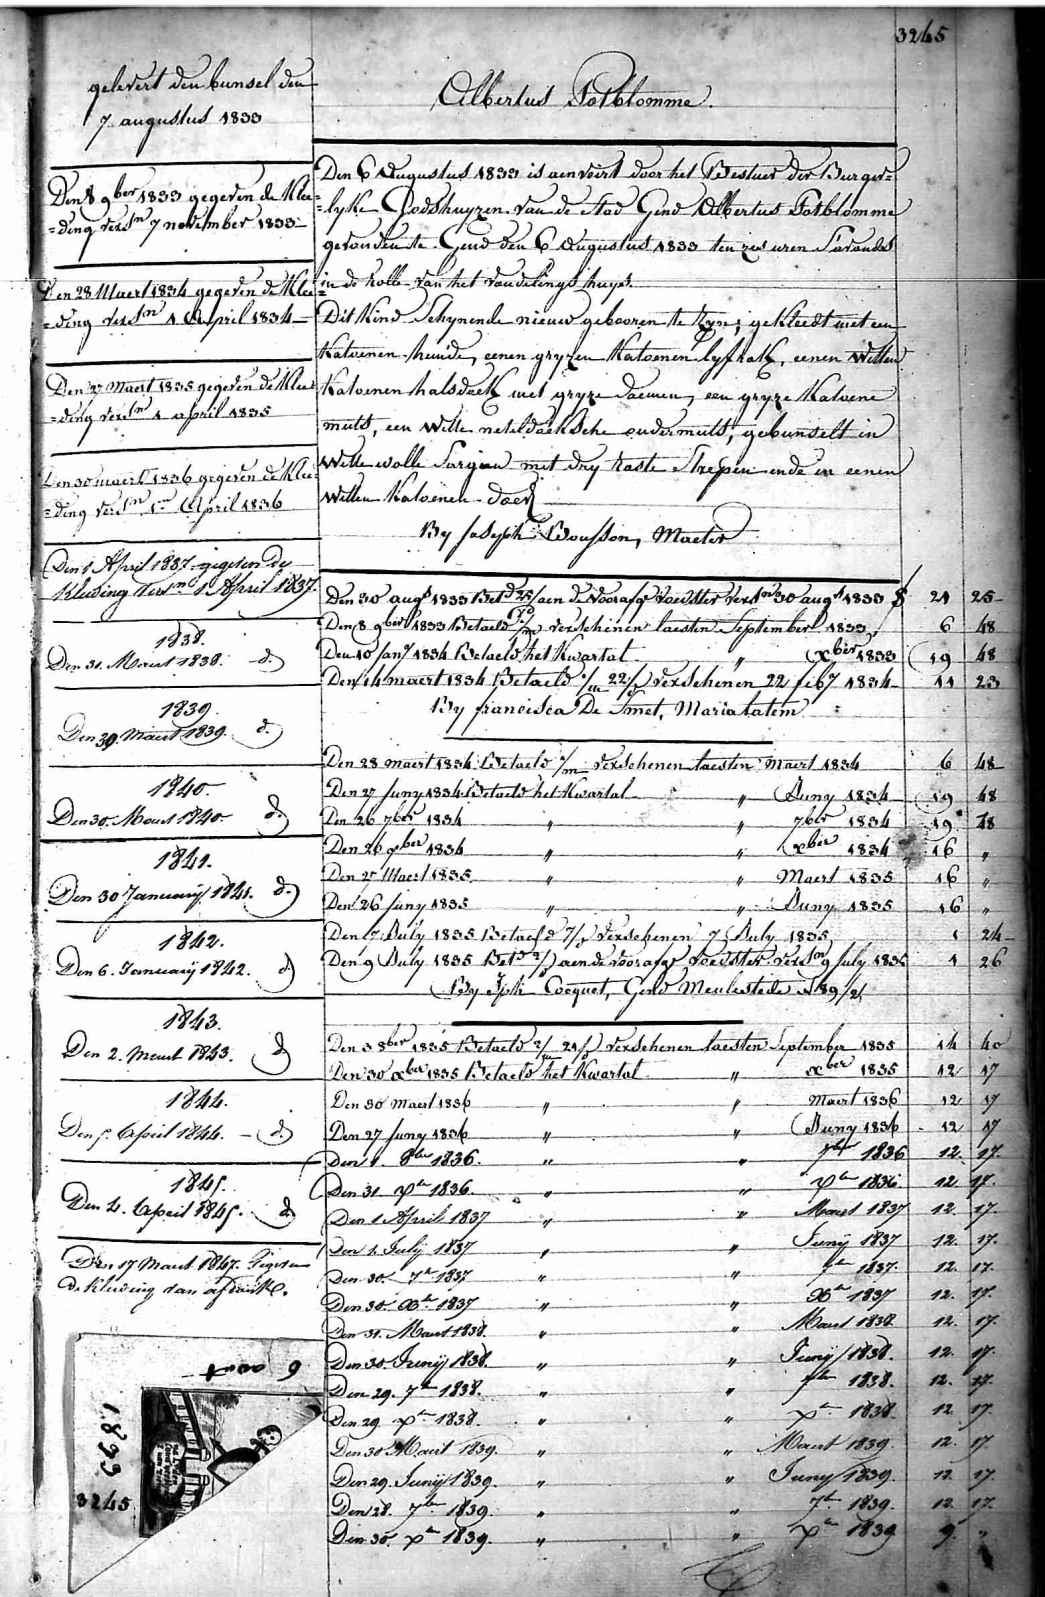 3245
gelevert den bunsel den
7 augustus 1833
Den 8 9ber 1833 gegeven de Klee=
=ding versn 7 november 1833
Den 28 Maert 1834 gegeven de Klee=
=ding versn 1 April 1834
Den 27 Maert 1835 gegeven de Klee=
=ding versn 1 april 1835
Den 30 maert 1836 gegeven de Klee=
=ding versn 1en April 1836
Den 1 April 1837 gegeven de
Kleeding versn 1 April 1837.
1838.
Den 31. Maert 1838. d.
1839.
Den 30. Maert 1839. d.
1840.
Den 30. Maert 1840 d.
1841.
Den 30 January 1841. d.
1842.
Den 6. January 1842. d.
1843.
Den 2. Maert 1843. d.
1844.
Den 5. April 1844. d.
1845.
Den 4. April 1845. d.
Den 17 Maert 1847.
de kleeding van
6 aout
1833
3245
Albertus Potblomme.
Den 6 Augustus 1833 is aenveirt door het Bestuer der Burger=
=lyke Godshuyzen van de stad Gend Albertus Potblomme
gevonden te Gend den 6 Augustus 1833 ten zes uren S'avonds
in de rolle van het vondelings huys.
Dit Kind Schynende nieuw gebooren te zyn; gekleedt met een
Katoenen hemde, eenen gryzen Katoenen lyfrok, eenen Witten
Katoenen halsdoek met gryze daemen, een gryze Katoene
muts, een Witte neteldoeksche ondermuts, gebunselt in
Witte wolle Sargien met dry Streepen ende in eenen
Witten Katoenen doek
By Joseph Bousson, Maeter
Den 30 augt 1833 Betd 25/ aen de voorafge voedster versn 30 augt 1833 $ 21 25
Den 8 9ber 1833 Betaeld 1/m verschenen laesten September 1833 6 48
Den 10 jany 1834 Betaeld het Kwartal " xber 1833 19 48
Den 14 maert 1834 Betaeld 1/m 22/ verschenen 22 feby 1834 11 23
By francisca De Smet, Mariakatem
Den 28 maert 1834 Betaeld 1/m verschenen laesten Maert 1834 6 48
Den 27 Juny 1834 Betaeld het Kwartal " Juny 1834 19 48
Den 26 7ber 1834 " " 7ber 1834 19 48
Den 26 xber 1834 " " xber 1834 16 "
Den 27 Maert 1835 " " Maert 1835 16 "
Den 26 Juny 1835 " " Juny 1835 16 "
Den 17 July 1835 Betaeld 7/ verschenen 7 July 1835 1 24
Den 9 July 1835 Betd 2/ aen de voorafge voedster versn 9 July 1835 1 26
By Jph Cocquet, Gend Meulestede
Den 3 8ber 1835 Betaeld 2/m 21/ verschenen laesten September 1835 14 40
Den 30 xber 1835 Betaeld het Kwartal " xber 1835 12 17
Den 30 Maert 1836 " " Maert 1836 12 17
Den 27 Juny 1836 " " Juny 1836 12 17
Den 1. 8ber 1836. " " 7ber 1836 12. 17.
Den 31. xber 1836. " " xber 1836 12. 17.
Den 1 April 1837 " " Maert 1837 12. 17.
Den 1. July 1837 " " Juny 1837 12. 17.
Den 30. 7ber 1837 " " 7ber 1837. 12. 17.
Den 30. xber 1837 " " xber 1837 12. 17.
Den 31. Maert 1838. " " Maert 1838 12. 17.
Den 30. Juny 1838. " " Juny 1838. 12. 17.
Den 29. 7ber 1838. " " 7ber 1838. 12. 17.
Den 29. xber 1838. " " xber 1838 12. 17.
Den 30 Maert 1839. " " Maert 1839. 12. 17.
Den 29. Juny 1839. " " Juny 1839. 12. 17.
Den 28. 7ber 1839. " " 7ber 1839. 12. 17.
Den 30. xber 1839. " " xber 1839 9. "